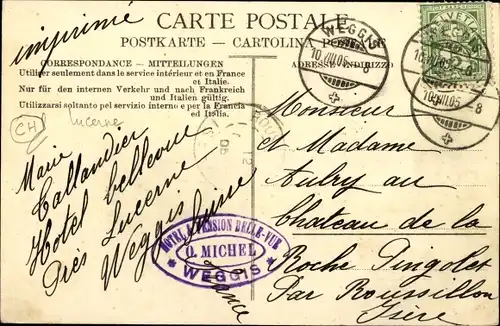 imprimé
CARTE POSTALE
POSTKARTE - CARTOLINA POSTALE
CORRESPONDANCE - MITTEILUNGEN
Utiliser seulement dans le service intérieur et en France
et Italie.
Nur für den internen Verkehr und nach Frankreich
und Italien gültig.
Utilizzarsi soltanto pel servizio interno e per la Francia
ed Italia.
ADRESSE - INDIRIZZO
WEGGIS
10.VIII.05. 8
HELVETIA
10.VIII.05. 8
CH
Lucerne
Marie
Callandier
Hotel bellevue
Près Lucerne
Weggis Suisse
HOTEL & PENSION BELLE-VUE
O. MICHEL
WEGGIS
Monsieur
et Madame
Autry au
Chateau de la
Roche Pingolet
Par Roussillon
Isère
France